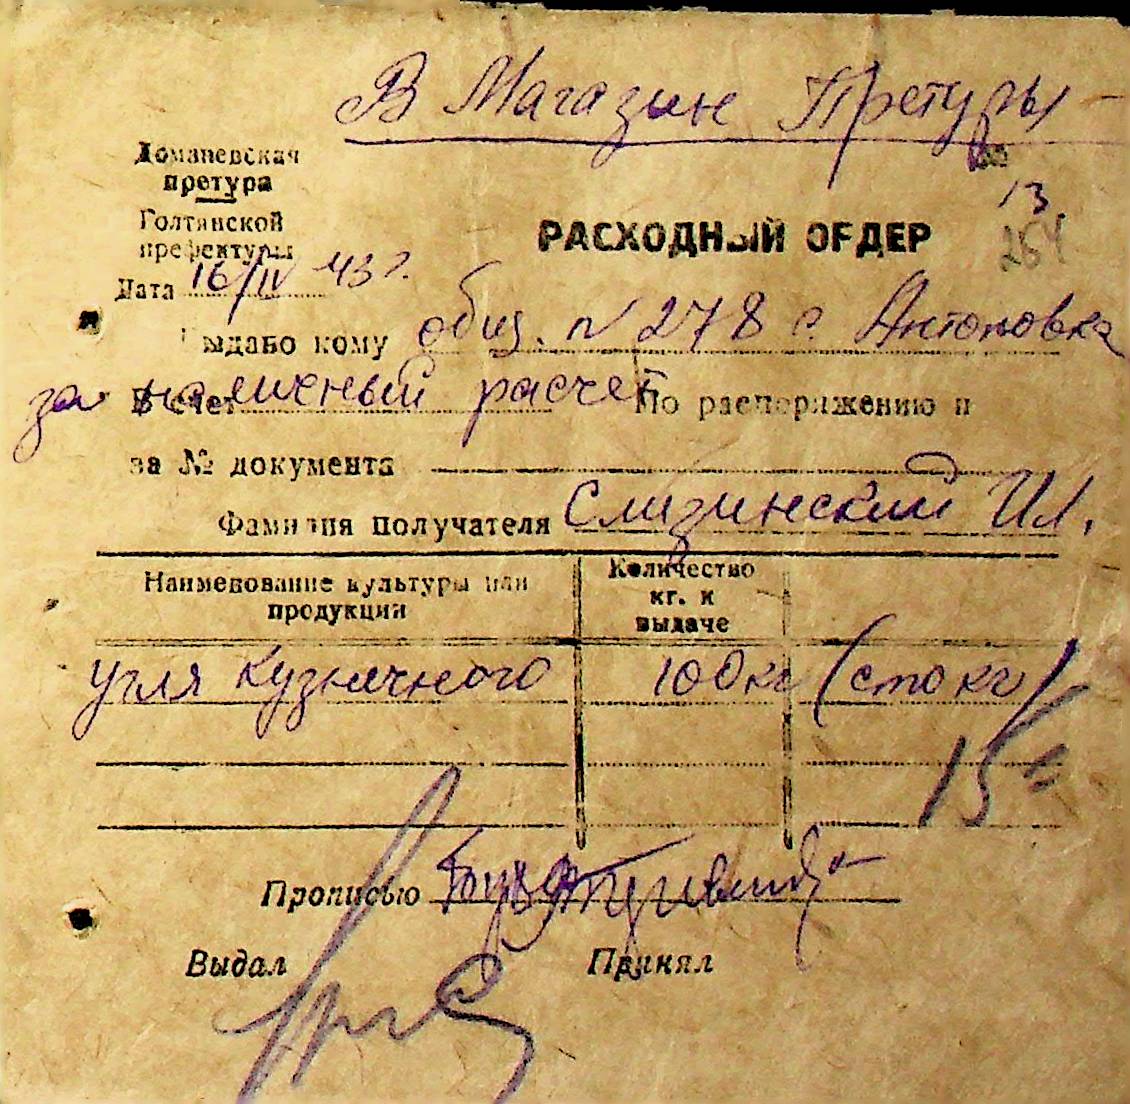 В Магазин Претуры
Доманевская
претура
Голтянской
префектуры
№
13
254
РАСХОДНЫЙ ОРДЕР
Дата 16/IV 43 г.
Выдано кому общ. № 278 с. Антоновка
В счет за наличный расчет По распоряжению и
за № документа
Фамилия получателя Слизинский Ил.
Наименование культуры или
продукции
Количество
кг. к
выдаче
Угля Кузнечного 100 кг (сто кг)
15
Прописью
Выдал Принял